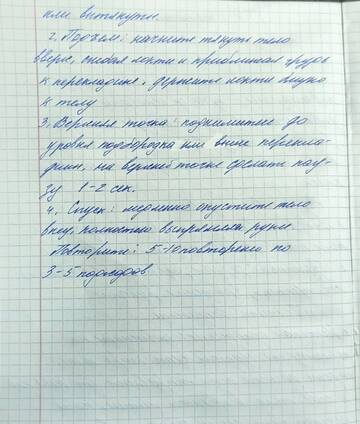 или вытянуты.
2. Подъем: начните тянуть тело
вверх, сгибая локти и приближая грудь
к перекладине, держите локти близко
к телу
3. Верхняя точка: поднимитесь до
уровня подбородка или выше перекла-
дины, на верхней точке сделать пау-
зу 1-2 сек.
4. Спуск: медленно опустите тело
вниз, полностью выпрямляя руки.
Повторите: 5-10 повторений по
3-5 подходов